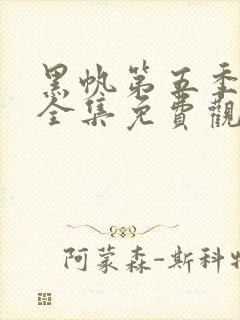 黑帆第五季
全集免費觀
阿蒙森-斯科特